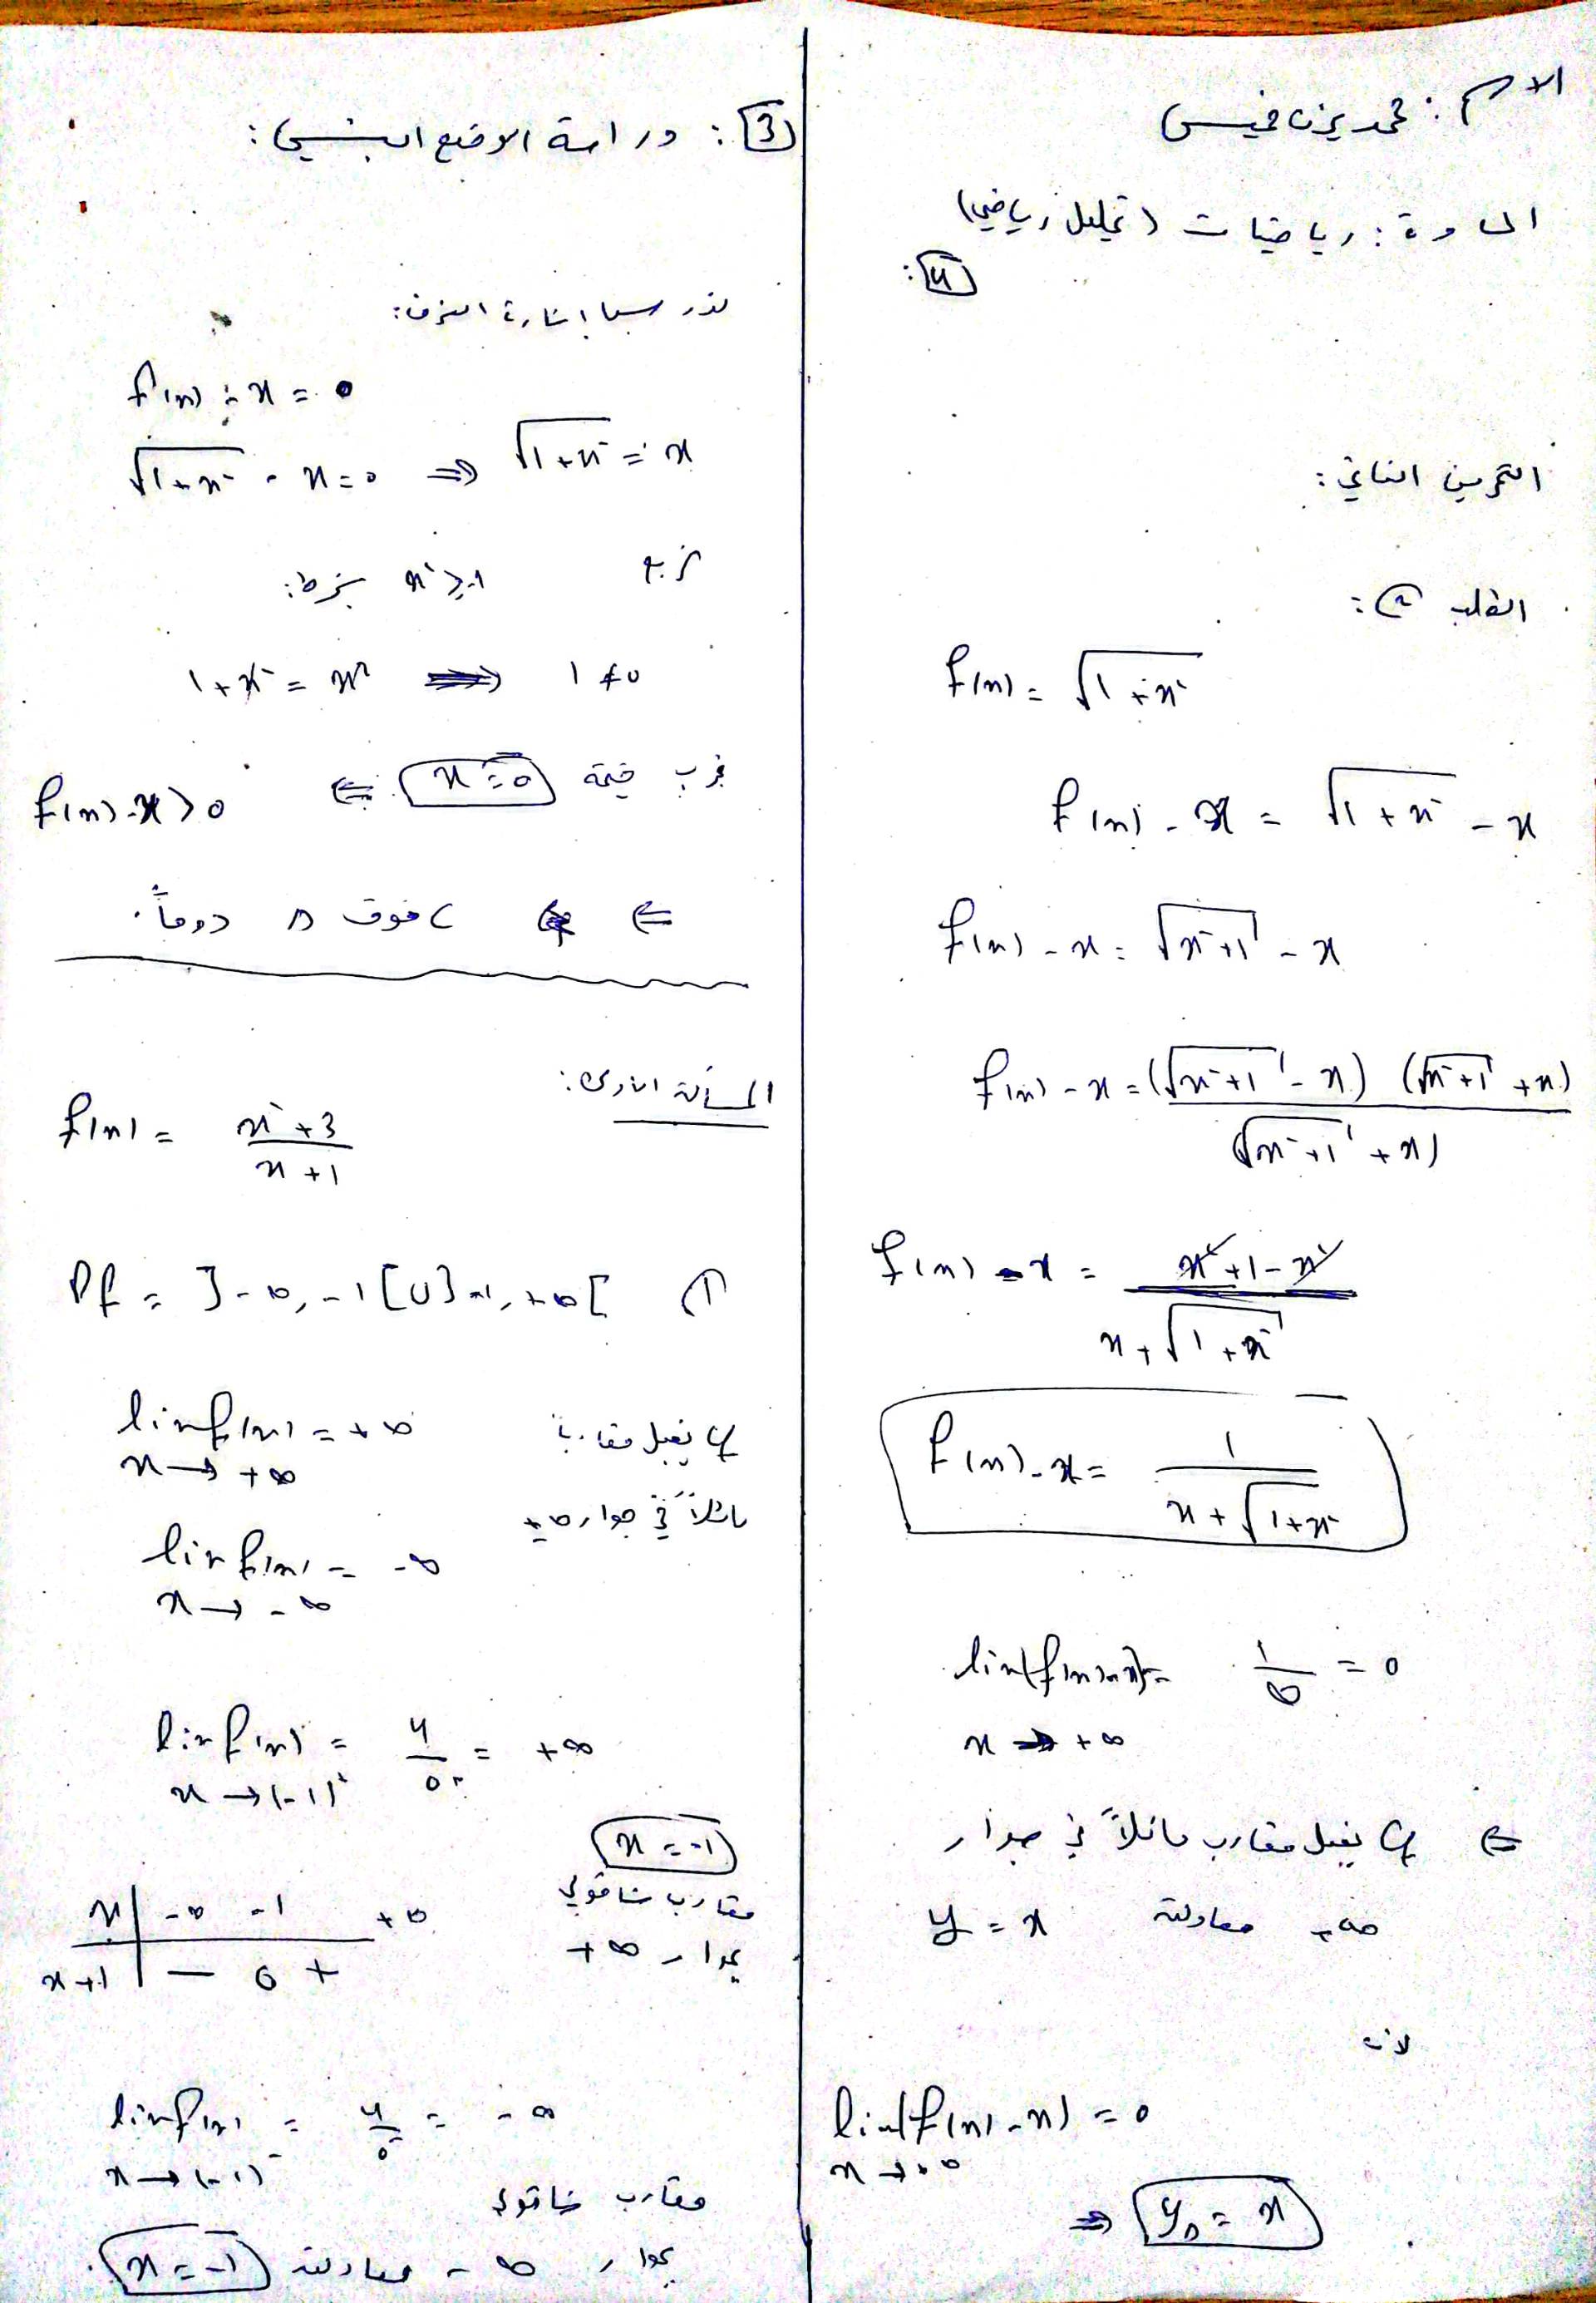 الاسم : محمد يزن خميس
المادة : رياضيات (تحليل رياضي)
4 :
التمرين الثاني :
الطلب 2 :
f(x) = √(1+x²)
f(x) - x = √(1+x²) - x
f(x) - x = √(x²+1) - x
f(x) - x = (√(x²+1) - x) (√(x²+1) + x) / (√(x²+1) + x)
f(x) - x = x²+1-x² / x+√(1+x²)
f(x) - x = 1 / x+√(1+x²)
lim (f(x)-x) = 1/∞ = 0
x → +∞
⇐ C يقبل مقارب مائلاً في جوار
+∞ معادلته y = x
لأن
lim (f(x) - x) = 0
x → +∞
⇒ y_Δ = x
3 : دراسة الوضع النسبي :
ندرس إشارة الفرق :
f(x) - x = 0
√(1+x²) - x = 0 ⇒ √(1+x²) = x
نربع بشرط :
1+x² = x² ⇒ 1 ≠ 0
نجرب قيمة x = 0 ⇐ f(x)-x > 0
⇐ C فوق Δ دوماً .
المسألة الأولى :
f(x) = x²+3 / x+1
1 Df = ]-∞, -1[ U ]-1, +∞[
lim f(x) = +∞
x → +∞
C يقبل مقارباً
مائلاً في جوار +∞
lim f(x) = -∞
x → -∞
lim f(x) = 4/0⁺ = +∞
x → (-1)⁺
x = -1
مقارب شاقولي
بجوار +∞
x | -∞ -1 +∞
x+1 | - 0 +
lim f(x) = 4/0⁻ = -∞
x → (-1)⁻
مقارب شاقولي
بجوار -∞ معادلته x = -1 .